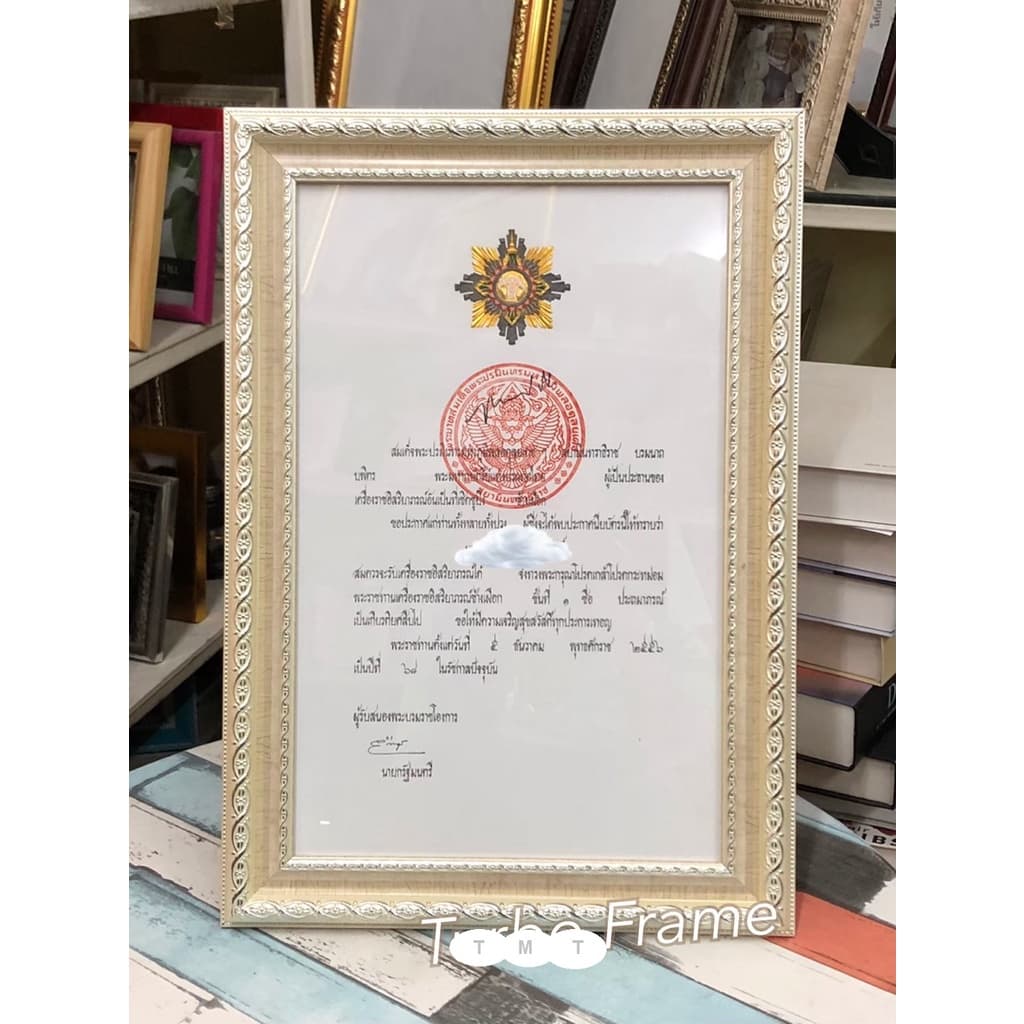 สมเด็จพระปรมินทรมหาภูมิพลอดุลยเดช สยามินทราธิราช บรมนาถ
บพิตร ผู้เป็นประธานของ
เครื่องราชอิสริยาภรณ์อันเป็นที่เชิดชูยิ่ง ช้างเผือก
ขอประกาศแก่ท่านทั้งหลายทั้งปวง ผู้ซึ่งจะได้พบประกาศนียบัตรนี้ให้ทราบว่า
สมควรจะรับเครื่องราชอิสริยาภรณ์ได้ จึงทรงพระกรุณาโปรดเกล้าโปรดกระหม่อม
พระราชทานเครื่องราชอิสริยาภรณ์ช้างเผือก ชั้นที่ ๑ ชื่อ ประถมาภรณ์
เป็นเกียรติยศสืบไป ขอให้มีความเจริญสุขสวัสดิ์ทุกประการเทอญ
พระราชทานตั้งแต่วันที่ ๕ ธันวาคม พุทธศักราช ๒๕๕๖
เป็นปีที่ ๖๘ ในรัชกาลปัจจุบัน
ผู้รับสนองพระบรมราชโองการ
นายกรัฐมนตรี
Frame
T M T